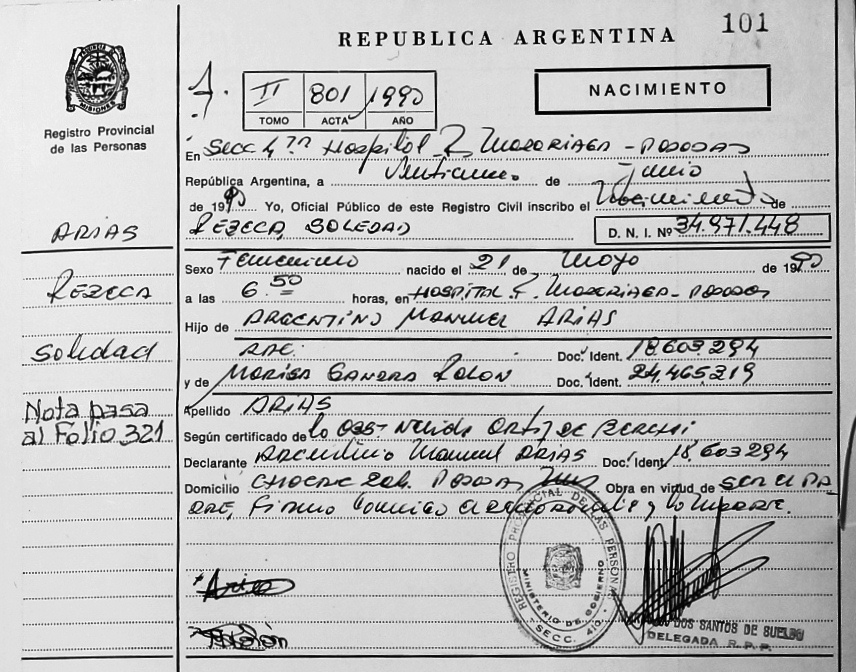 101
REPUBLICA ARGENTINA
NACIMIENTO
II 801 1990
TOMO ACTA AÑO
PROVINCIA DE MISIONES
Registro Provincial
de las Personas
ARIAS
REZECA
Soledad
Nota pasa
al Folio 321
En Secc 4ta Hospital R. MADARIAGA - POSADAS
República Argentina, a Veintiuno de Junio
de 1990 Yo, Oficial Público de este Registro Civil inscribo el Nacimiento de
REZECA SOLEDAD D. N. I. Nº 34.971.448
Sexo Femenino nacido el 21 de Mayo de 1990
a las 6.50 horas, en HOSPITAL R. MADARIAGA - POSADAS
Hijo de ARGENTINO MANUEL ARIAS
ARG. Doc. Ident. 18.603.294
y de MARISA SANDRA ROLON Doc. Ident. 24.465.219
Apellido ARIAS
Según certificado de la OBST. Nelida ORTIZ DE
Declarante Argentino Manuel ARIAS Doc. Ident. 18.603.294
Domicilio CHACRA Posadas Obra en virtud de SER EL PA
DRE, Firma conmigo el declarante y la madre.
Arias
Rolón
REGISTRO PROVINCIAL DE LAS PERSONAS
MINISTERIO DE GOBIERNO
SECC. 4ta.
DOS SANTOS DE
DELEGADA R. P. P.